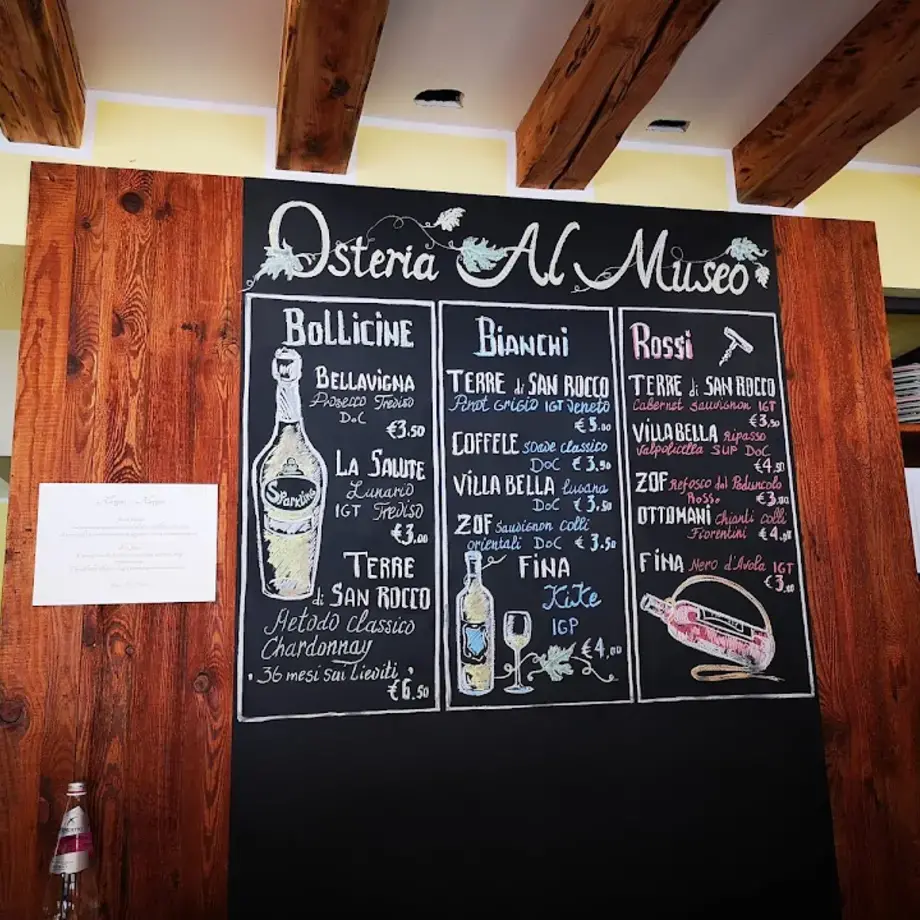 Osteria Al Museo
Bollicine
Bellavigna
Prosecco Treviso
DoC
€3.50
La Salute
Lunario
IGT Treviso
€3,00
Terre
di San Rocco
Metodo Classico
Chardonnay
• 36 mesi sui lieviti •
€6.50
Sparkling
Bianchi
Terre di San Rocco
Pinot Grigio IGT Veneto
€5.00
Coffele Soave Classico
DoC €3,50
Villa Bella Lugana
DoC €3,50
Zof Sauvignon colli
orientali DoC €3.50
Fina
KiKe
IGP
€4,00
Rossi
Terre di San Rocco
Cabernet Sauvignon IGT
€3,50
Villa Bella Ripasso
Valpolicella SUP DoC
€4,50
Zof Refosco dal Peduncolo
Rosso €3,00
Ottomani Chianti Colli
Fiorentini €4,00
Fina Nero d'Avola IGT
€3,00